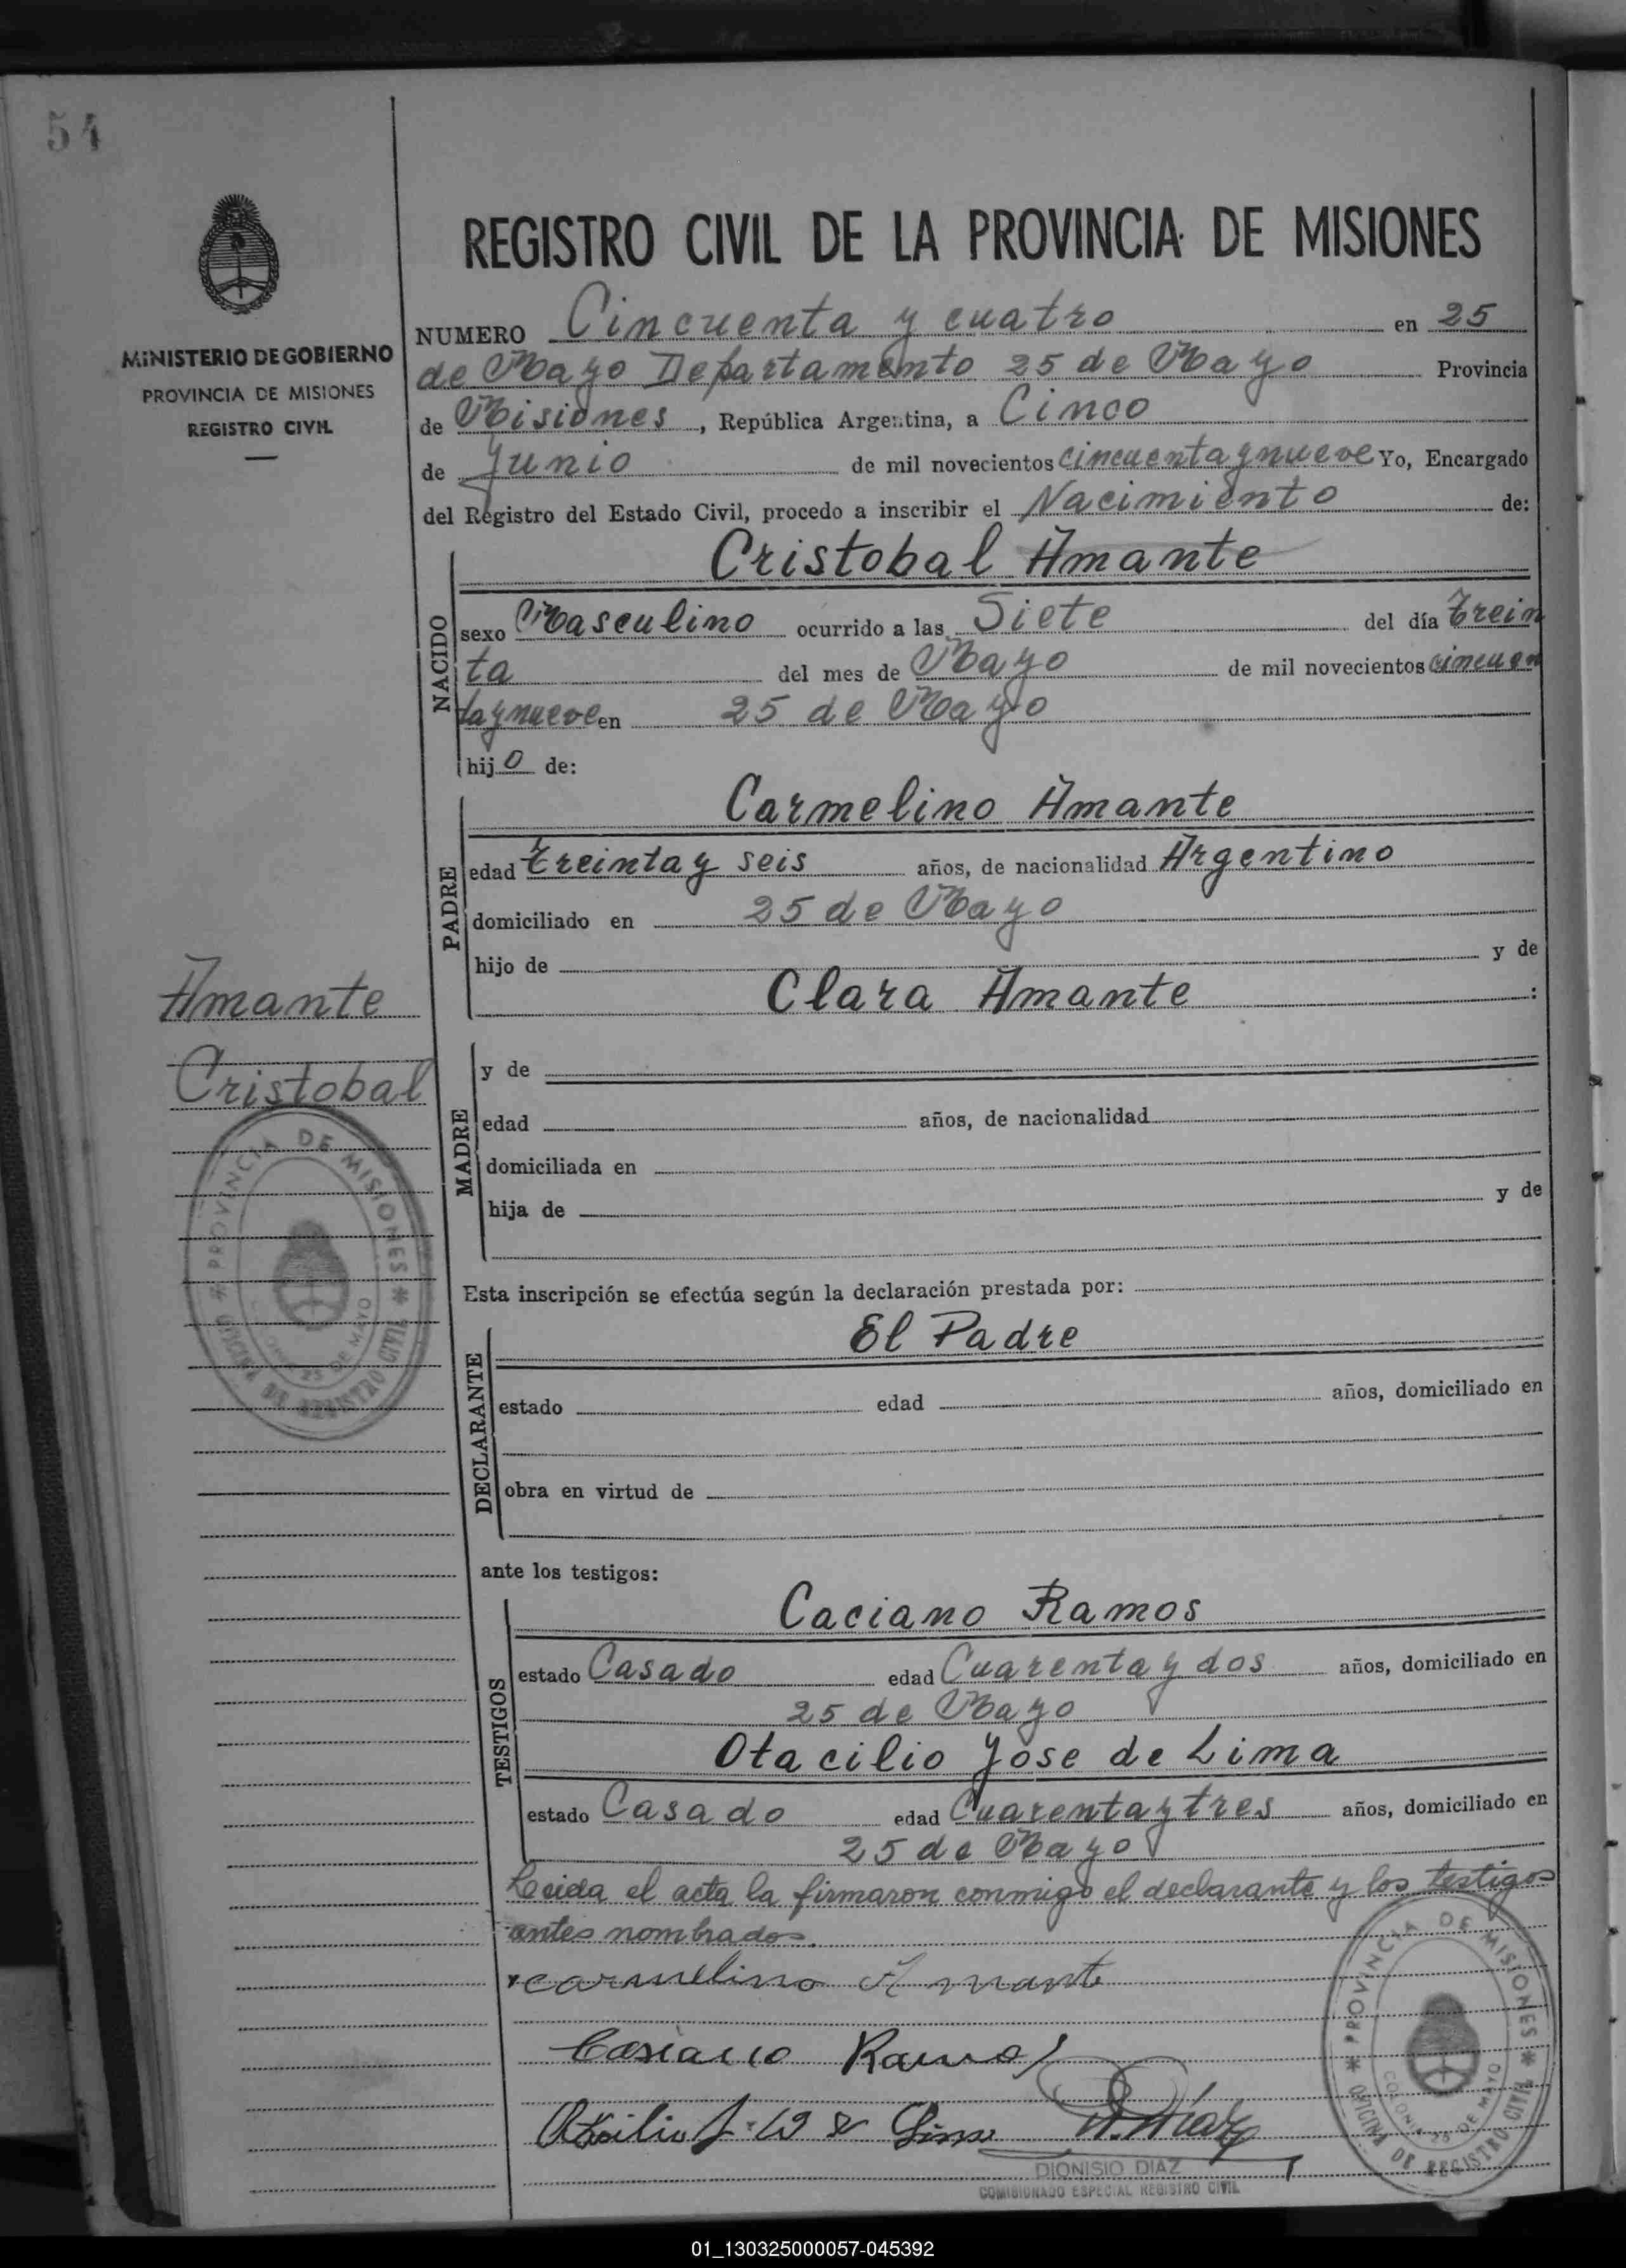 54
MINISTERIO DE GOBIERNO
PROVINCIA DE MISIONES
REGISTRO CIVIL
REGISTRO CIVIL DE LA PROVINCIA DE MISIONES
NUMERO Cincuenta y cuatro en 25
de Mayo Departamento 25 de Mayo Provincia
de Misiones, República Argentina, a Cinco
de Junio de mil novecientos cincuenta y nueve Yo, Encargado
del Registro del Estado Civil, procedo a inscribir el Nacimiento de:
NACIDO
Cristobal Amante
sexo Masculino ocurrido a las Siete del día trein
ta del mes de Mayo de mil novecientos cincuen
ta y nueve en 25 de Mayo
hijo de:
PADRE
Carmelino Amante
edad treinta y seis años, de nacionalidad Argentino
domiciliado en 25 de Mayo
hijo de y de
Clara Amante :
Amante
Cristobal
MADRE
y de
edad años, de nacionalidad
domiciliada en
hija de y de
PROVINCIA DE MISIONES
OFICINA DE REGISTRO CIVIL
25 DE MAYO
Esta inscripción se efectúa según la declaración prestada por:
DECLARANTE
El Padre
estado edad años, domiciliado en
obra en virtud de
ante los testigos:
TESTIGOS
Caciano Ramos
estado Casado edad Cuarenta y dos años, domiciliado en
25 de Mayo
Otacilio Jose de Lima
estado Casado edad Cuarenta y tres años, domiciliado en
25 de Mayo
Leida el acta la firmaron conmigo el declarante y los testigos
antes nombrados.
carmelino Amante
Casiano Ramos
Lima D. Díaz
DIONISIO DIAZ
COMISIONADO ESPECIAL REGISTRO CIVIL
PROVINCIA DE MISIONES
OFICINA DE REGISTRO CIVIL
COLONIA 25 DE MAYO
01_130325000057-045392